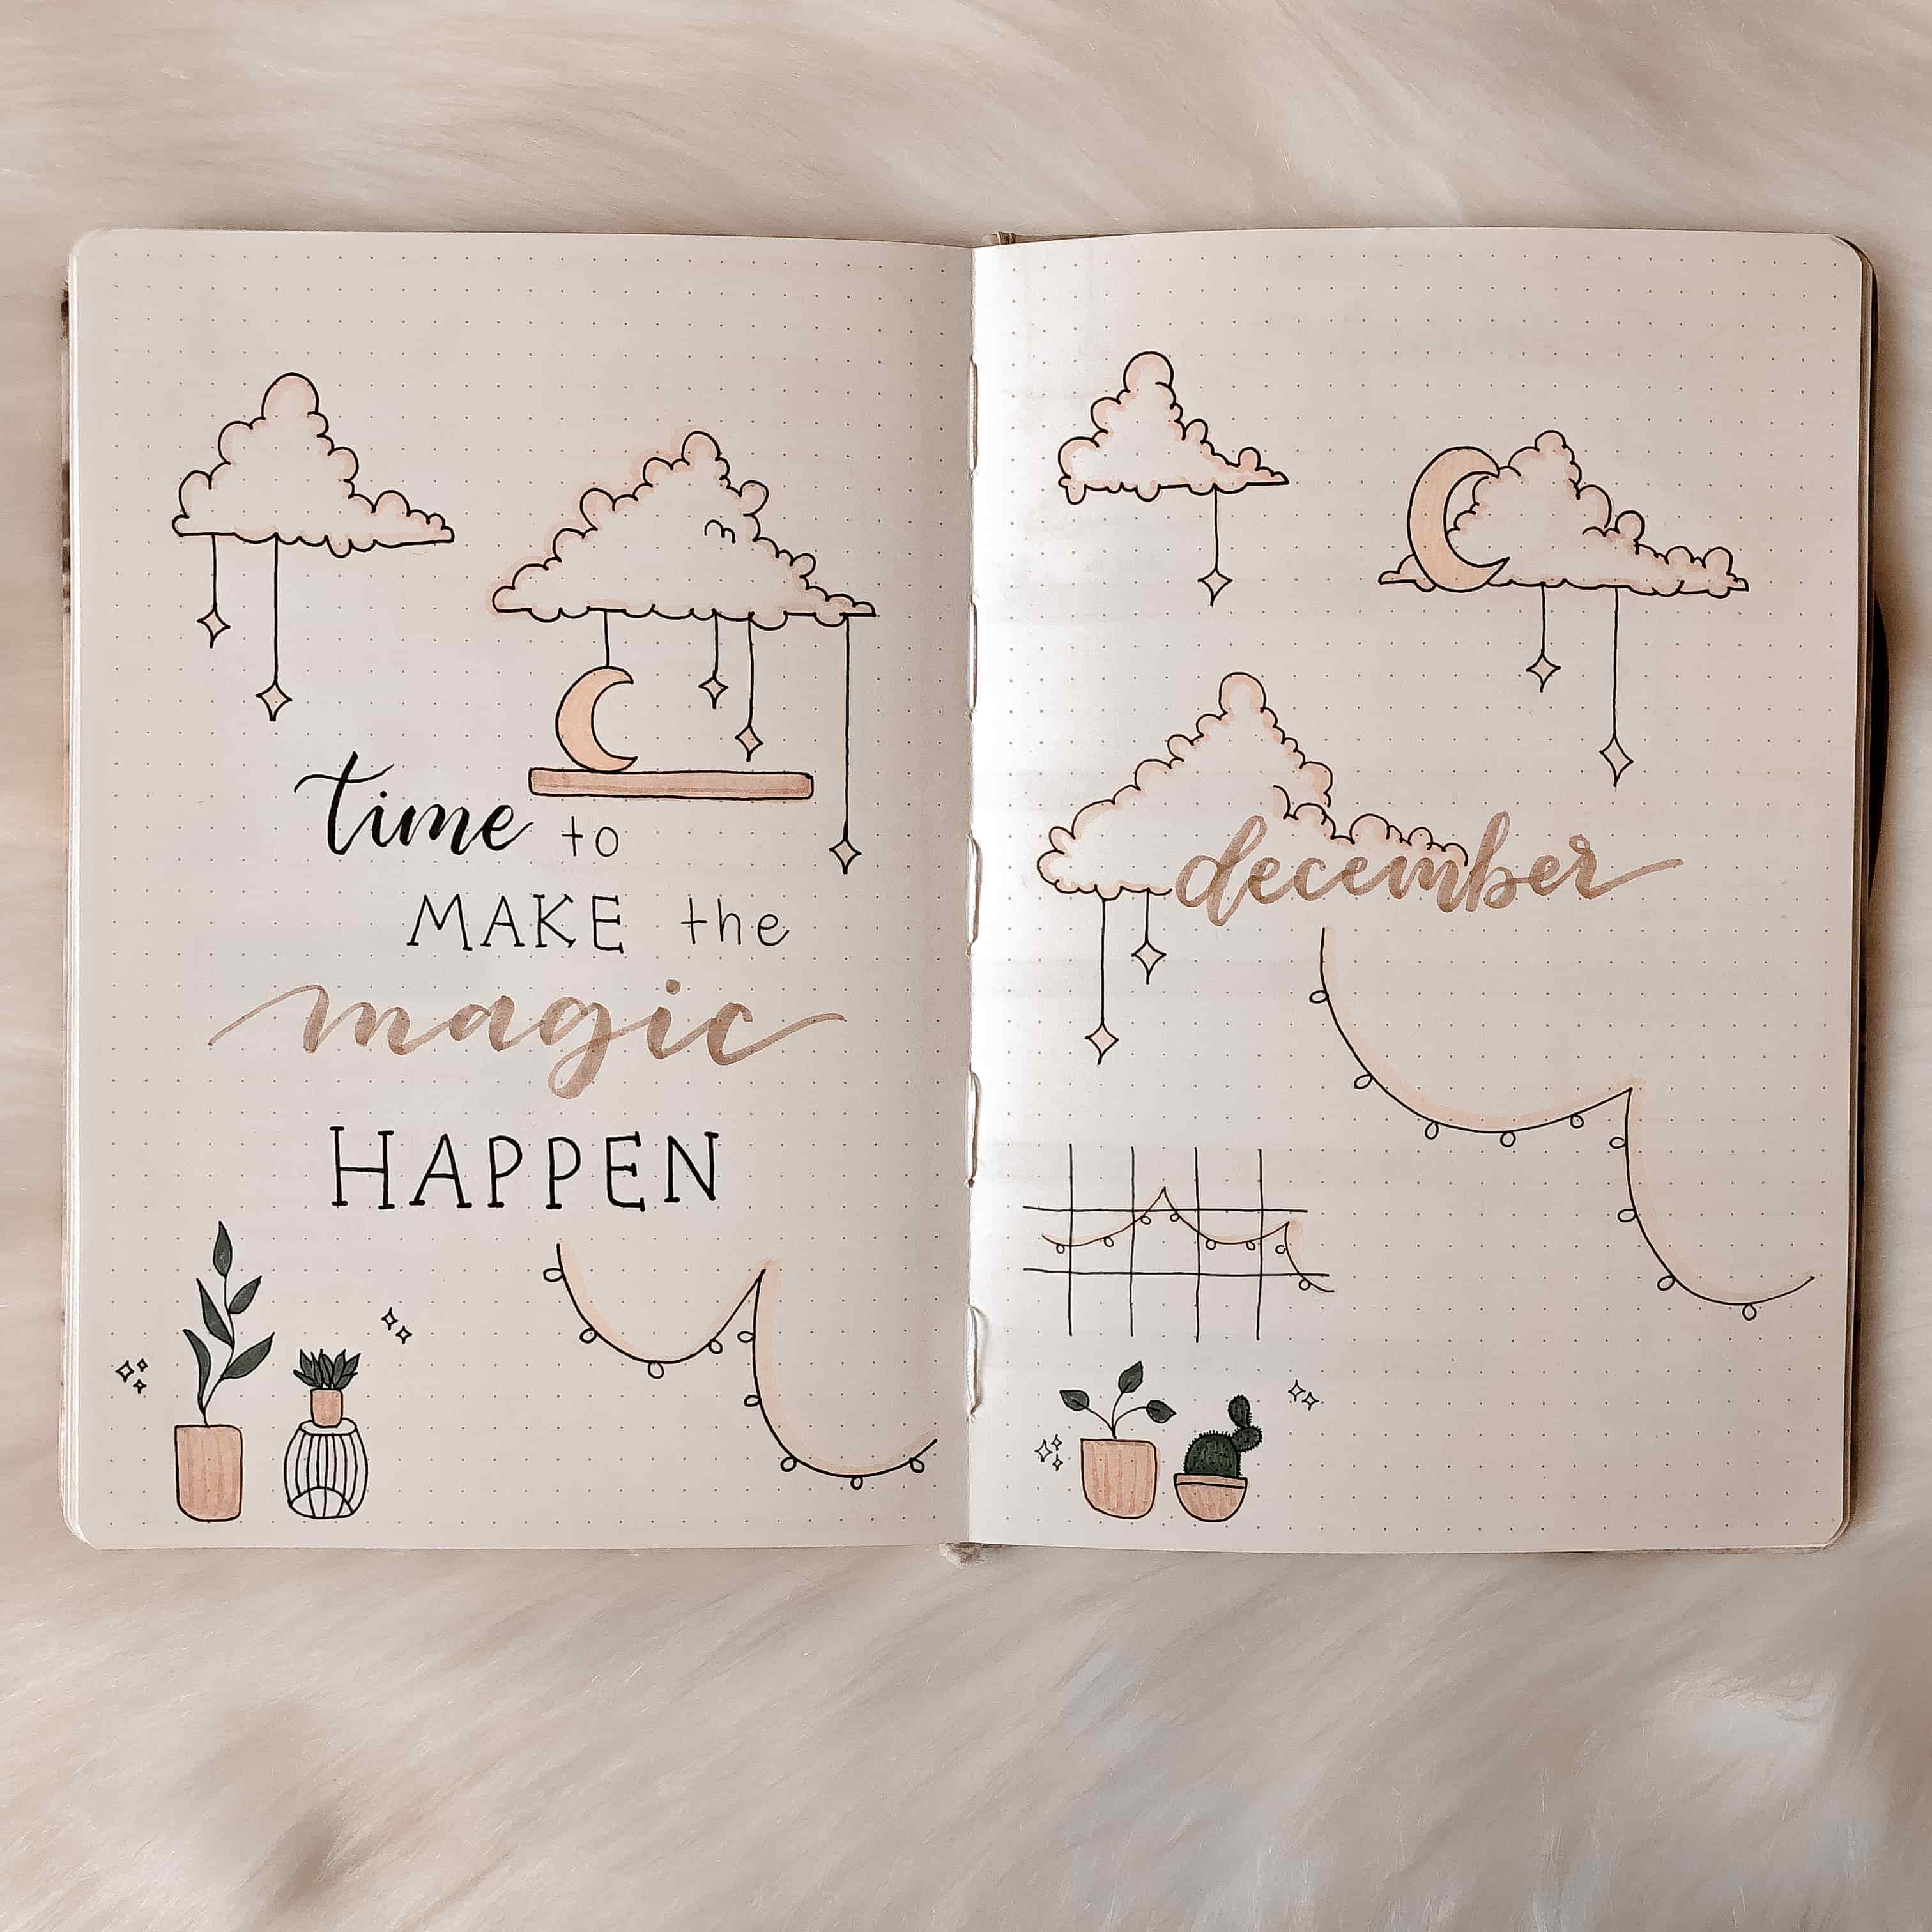 time to
MAKE the
magic
HAPPEN
december